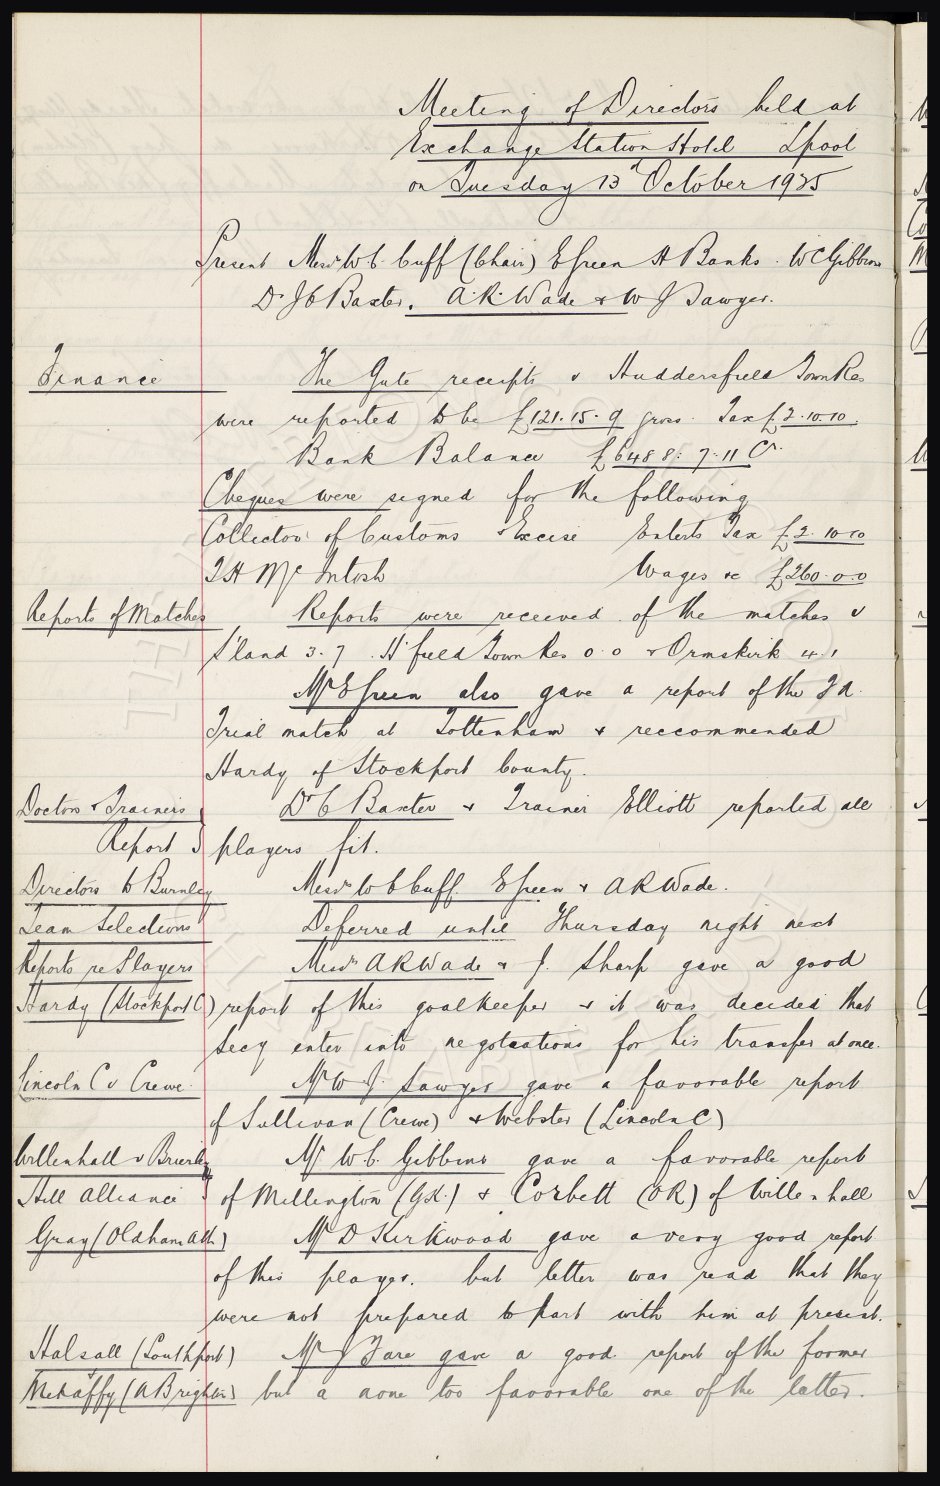 Meeting of Directors held at
Exchange Station Hotel Lpool
on Tuesday 13th October 1925
Present Messrs W.C. Cuff (Chair) E Green H Banks. W C Gibbins
Dr J C Baxter. A.R. Wade & W J Sawyer.
Finance The Gate receipts v Huddersfield Town Res
were reported to be £121.15.9 gross. Tax £2.10.10.
Bank Balance £6488.7.11 Cr.
Cheques were signed for the following
Collector of Customs & Excise Enterts Tax £2.10.10
T H McIntosh Wages &c £260.0.0
Reports of Matches Reports were received of the matches v
S'land 3.7. H'field Town Res 0.0 & Ormskirk 4.1
Mr E Green also gave a report of the F A.
Trial match at Tottenham & reccommended
Hardy of Stockport County.
Doctors & Trainers Dr C Baxter & Trainer Elliott reported all
Report players fit.
Directors to Burnley Messrs W C Cuff E Green & A R Wade.
Team Selections Deferred until Thursday night next
Reports re Players Messrs A R Wade & J. Sharp gave a good
Hardy (Stockport C) report of this goalkeeper & it was decided that
Secy enter into negotiations for his transfer at once.
Lincoln C v Crewe Mr W J. Sawyer gave a favorable report
of Sullivan (Crewe) & Webster (Lincoln C)
Willenhall v Brierley Mr W.C. Gibbins gave a favorable report
Hill Alliance of Millington (GK.) & Corbett (OR) of Willenhall
Gray (Oldham Ath) Mr D Kirkwood gave a very good report
of this player. but letter was read that they
were not prepared to part with him at present.
Halsall (Southport) Mr J Fare gave a good report of the former
Mehaffy (N Brighton) but a none too favorable one of the latter.